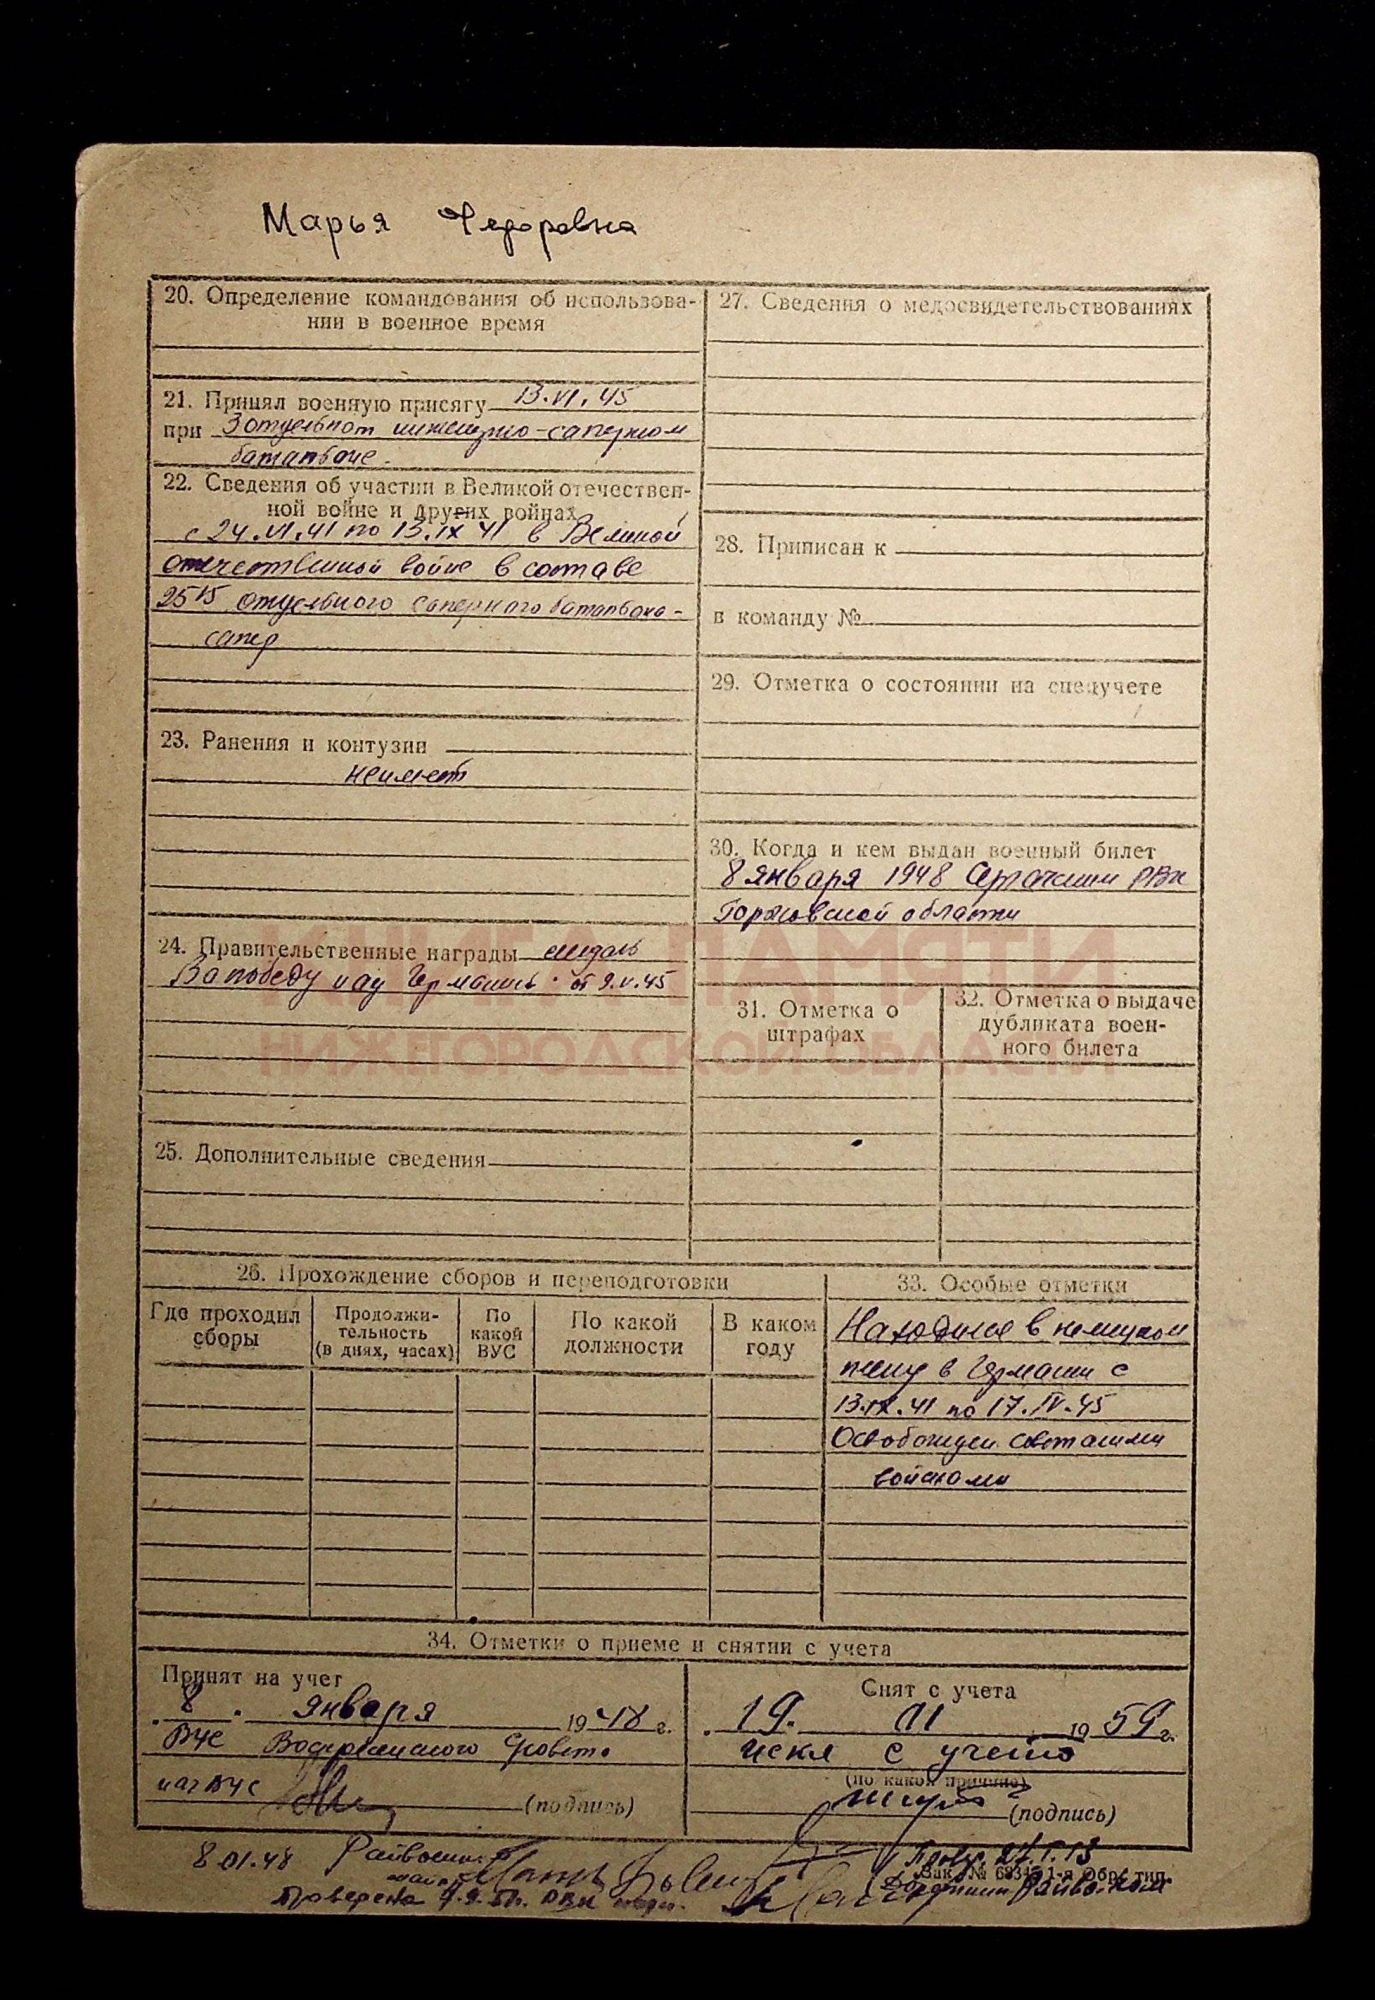 Марья Федоровна
20. Определение командования об использова-
нии в военное время
21. Принял военную присягу 13.VI.45
при 3 отдельном инженерно-саперном
батальоне.
22. Сведения об участии в Великой отечествен-
ной войне и других войнах
с 24.VI.41 по 13.IX 41 в Великой
отечественной войне в составе
отдельного саперного батальона-
сапер
23. Ранения и контузии
неимеет
24. Правительственные награды медаль
За победу над Германией от 9.V.45
25. Дополнительные сведения
26. Прохождение сборов и переподготовки
Где проходил сборы
Продолжи-
тельность
(в днях, часах)
По
какой
ВУС
По какой
должности
В каком
году
27. Сведения о медосвидетельствованиях
28. Приписан к
в команду №
29. Отметка о состоянии на спецучете
30. Когда и кем выдан военный билет
8 января 1948 Сергачским РВК
Горьковской области
31. Отметка о
штрафах
32. Отметка о выдаче
дубликата воен-
ного билета
33. Особые отметки
Находился в немецком
плену в Германии с
13.IX.41 по 17.IV.45
Освобожден советскими
войсками
34. Отметки о приеме и снятии с учета
Принят на учет
8 января 1948 г.
ВУС Совета
нач ВУС (подпись)
Снят с учета
19. III 1959 г.
искл с учета
(по какой причине)
(подпись)
8.01.48 Райвоенком
майор
Проверена РВК
Зак. № 1-я Обр. тип.
КНИГА ПАМЯТИ
НИЖЕГОРОДСКОЙ ОБЛАСТИ